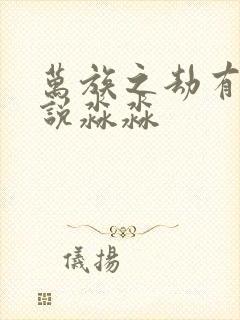 萬族之劫有
說淼淼
儀揚